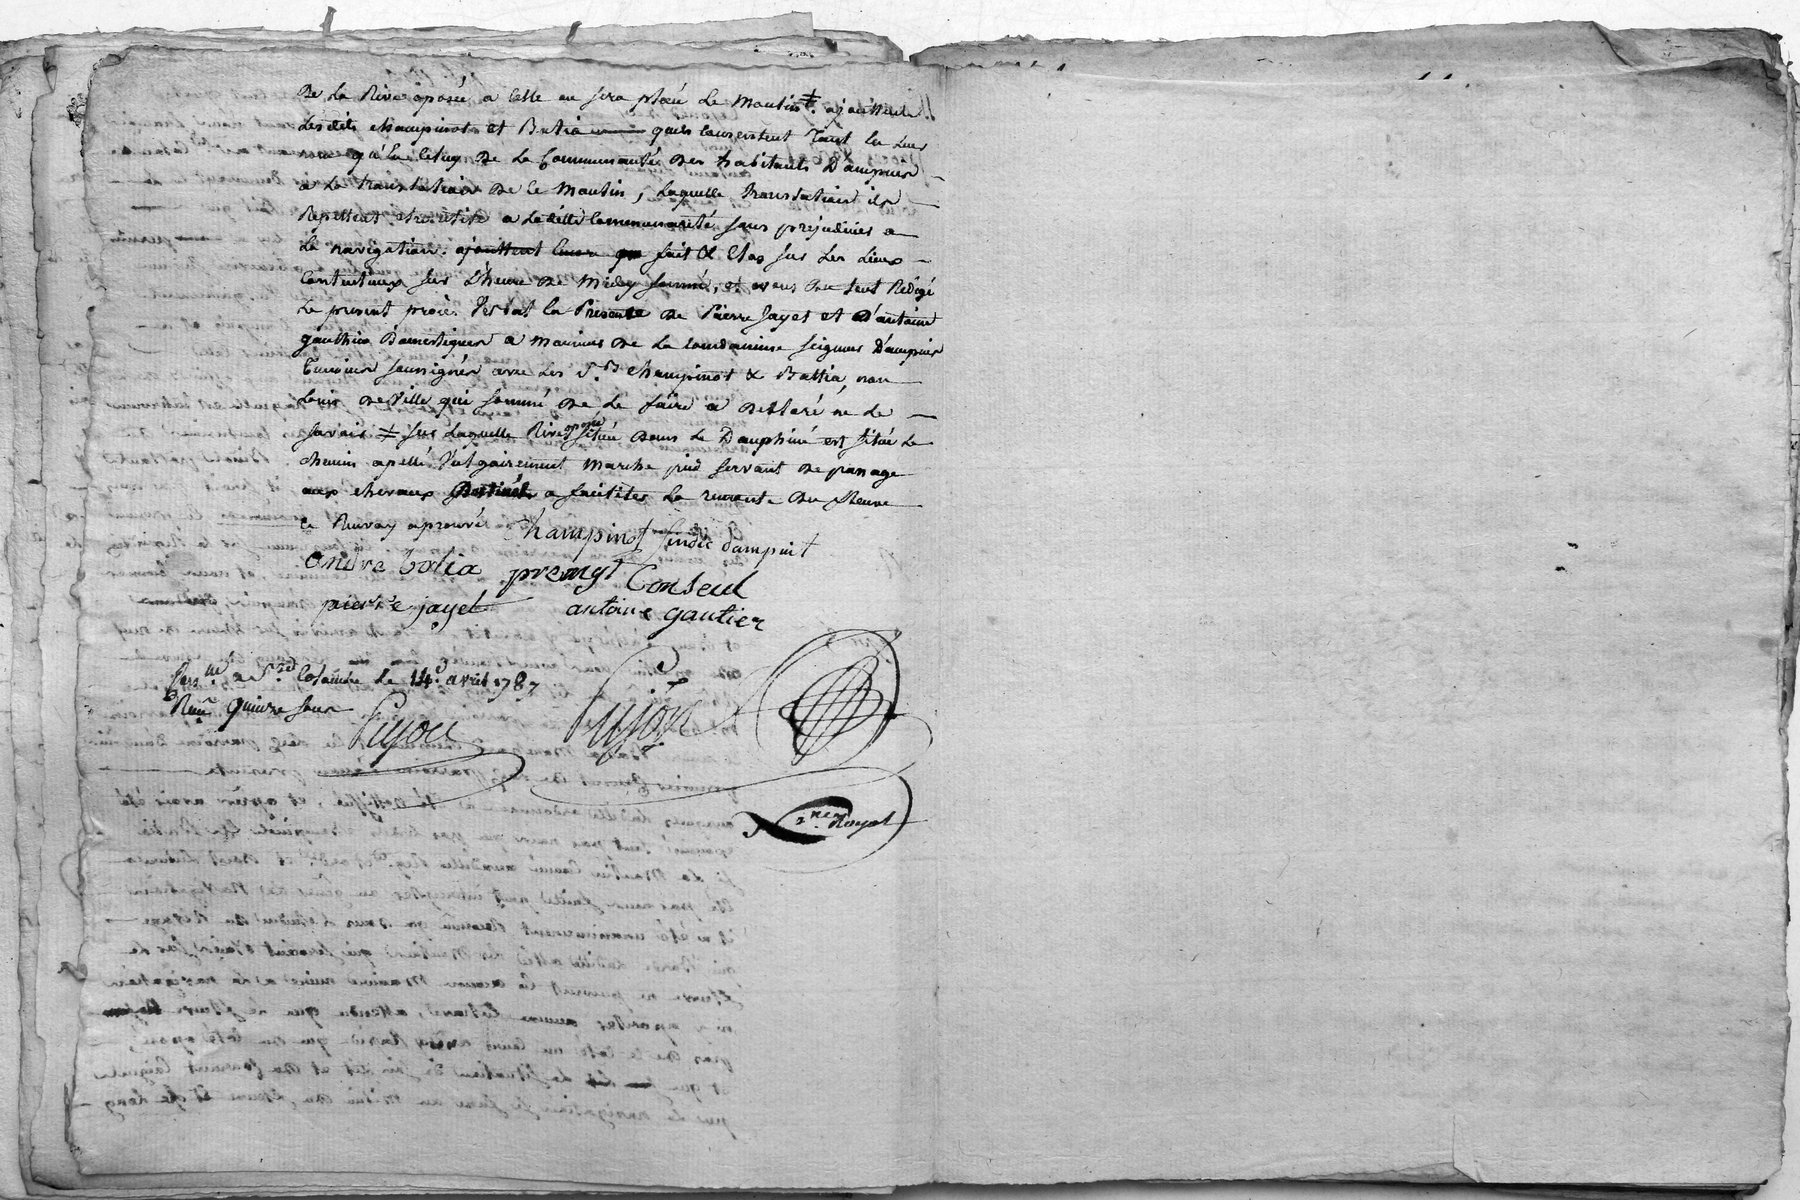 de la Rive oposée a Celle ou sera placé le Moulin ≠. ajoûttent
Lesdits champinot et Batia quils Consentent Tant en Leur
nom qu'en Celuy de la Communauté des habitants Dampuis
a la translation de Ce Moulin, laquelle translation ils
Repettent etre utile a ladite Communauté sans prejudicier a
la navigation. ajouttent fait & Clos sur les Lieux
Contentieux sur l'heure de Midy sonné, et avons du tout Rédigé
Le present procè Verbal En Presence de Pierre Jayet et D'antoine
gauthier Domestiques a Monsieur de la Condamine seigneur D'ampuis
Temoins soussignés avec les Srs Champinot & Battia, non
Louis deville qui sommé de Le faire a declaré ne le
savoir ≠ sur laquelle Rive oposée située dans le Dauphiné est située le
chemin apellé Vulgairement Marche pied servant de passage
aux chevaux destinés a faciliter La remonte du fleuve
ce Renvoy aprouvé
Champinot sindic dampuit
andre batia premyé Conseul
pierre jayet antoine gautier
a Ste Colombe le 14e avril 1787
Reçu quinze sous
Pujori Pujori
Nre Royal